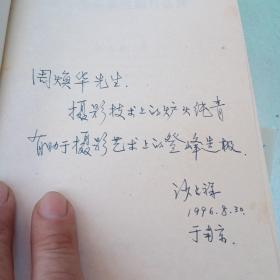 周焕华先生.
摄影技术上的炉火纯青
有助于摄影艺术上的登峰造极.
沙占祥
1996.8.30.
于南京.